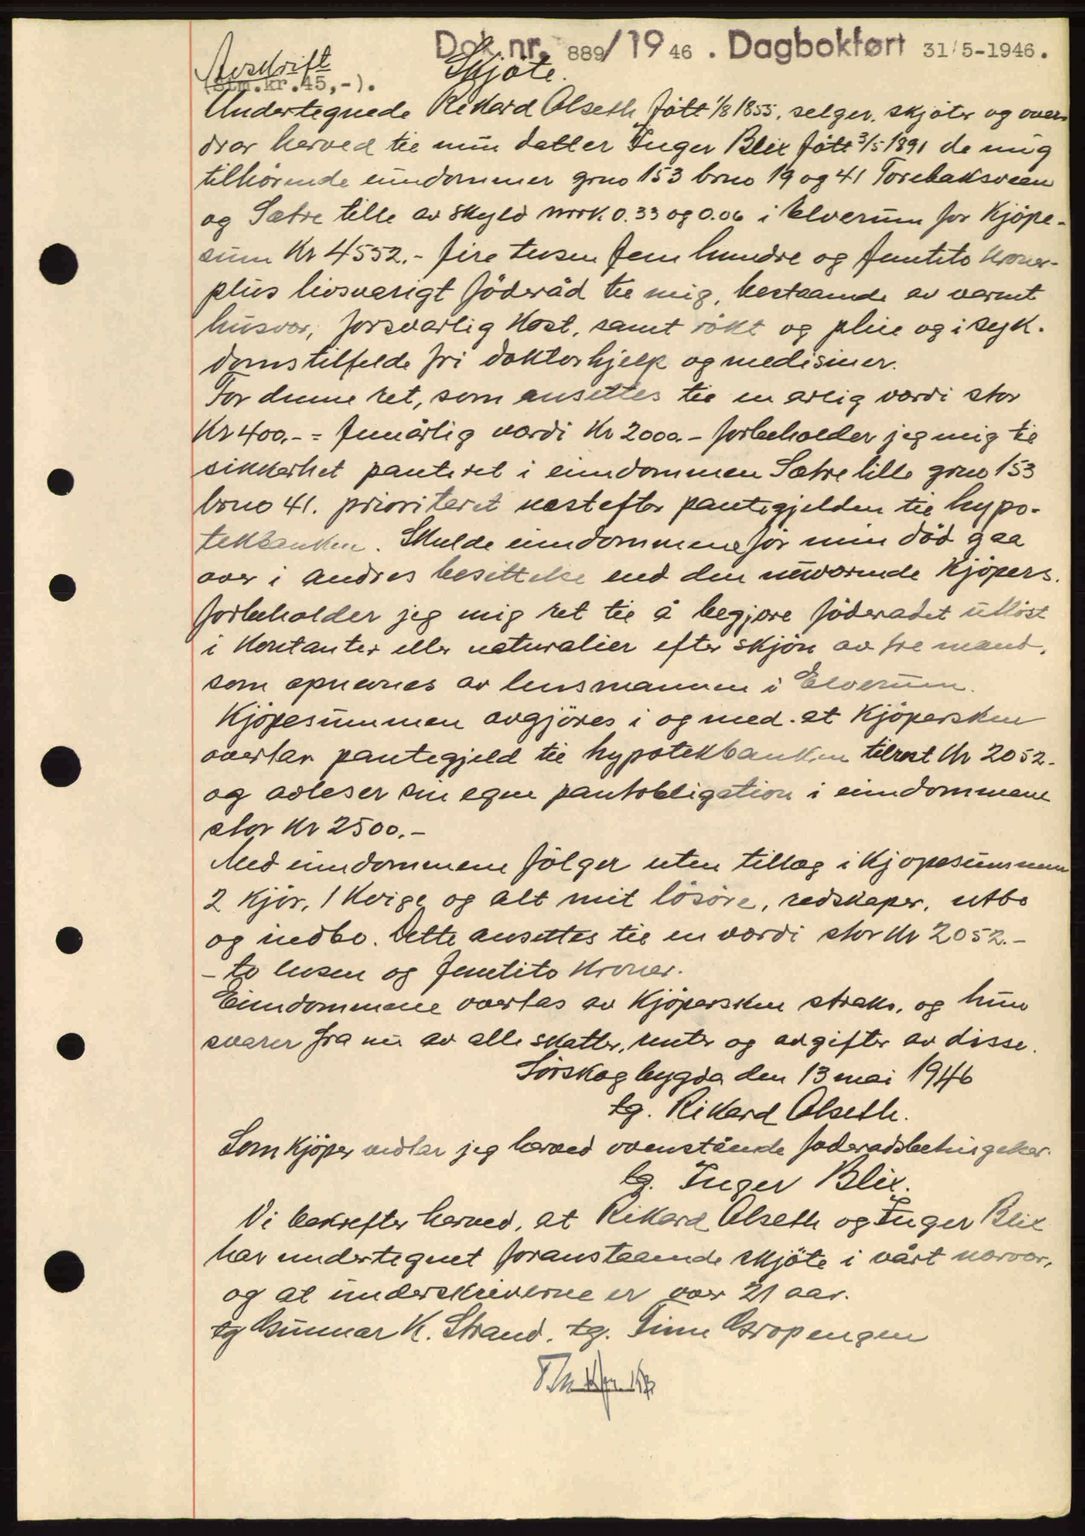 Dok nr. 889/1946. Dagbokført 31/5-1946.
Avskrift
(Stm.kr.45,-).
Skjøte.
Undertegnede Rikard Olseth født 1/8 1855, selger, skjøter og over-
drar herved til min datter Inger Blix født 3/5 1891 de mig
tilhørende eiendommer grno 153 brno 19 og 41
og Sætre lille av skyld mrk. 0.33 og 0.06 i Elverum for Kjøpe-
sum Kr 4552.- fire tusen fem hundre og femtito Kroner-
plus livsvarigt føderåd til mig, bestaaende av varmt
husvær, forsvarlig Kost, samt røkt og pleie og i syk-
domstilfelde fri doktorhjelp og medisiner.
For denne ret, som ansettes til en årlig værdi stor
Kr 400.- = femårlig værdi Kr 2000.- forbeholder jeg mig til
sikkerhet panteret i eiendommen Sætre lille grno 153
brno 41. prioritert næst efter pantegjelden til hypo-
tekbanken. Skulde eiendommene før min død gaa
over i andres besittelse end den nuværende Kjøpers.
forbeholder jeg mig ret til å begjære føderådet utløst
i Kontanter eller naturalier efter skjøn av tre mænd,
som opnevnes av lensmannen i Elverum.
Kjøpesummen avgjøres i og med at Kjøpersken
overtar pantegjeld til hypotekbanken tilrest Kr 2052.-
og avleser sin egen pantobligation i eiendommene
stor Kr 2500.-
Med eiendommene følger uten tillæg i Kjøpesummen
2 Kjør, 1 Kvige og alt mit løsøre, redskaper, utbo
og indbo. Dette ansettes til en værdi stor Kr 2052.-
- to tusen og femtito Kroner.
Eiendommene overtas av Kjøpersken straks, og hun
svarer fra nu av alle skatter, renter og avgifter av disse.
Sørskogbygda den 13 mai 1946
tg. Rikard Olseth.
Som Kjøper vedtar jeg herved ovenstående føderådsbetingelser.
tg. Inger Blix.
Vi bekrefter herved, at Rikard Olseth og Inger Blix
har undertegnet foranstaaende skjøte i vårt nærvær,
og at underskriverne er over 21 aar.
tg Gunnar K. Strand. tg. Finn Gropengen